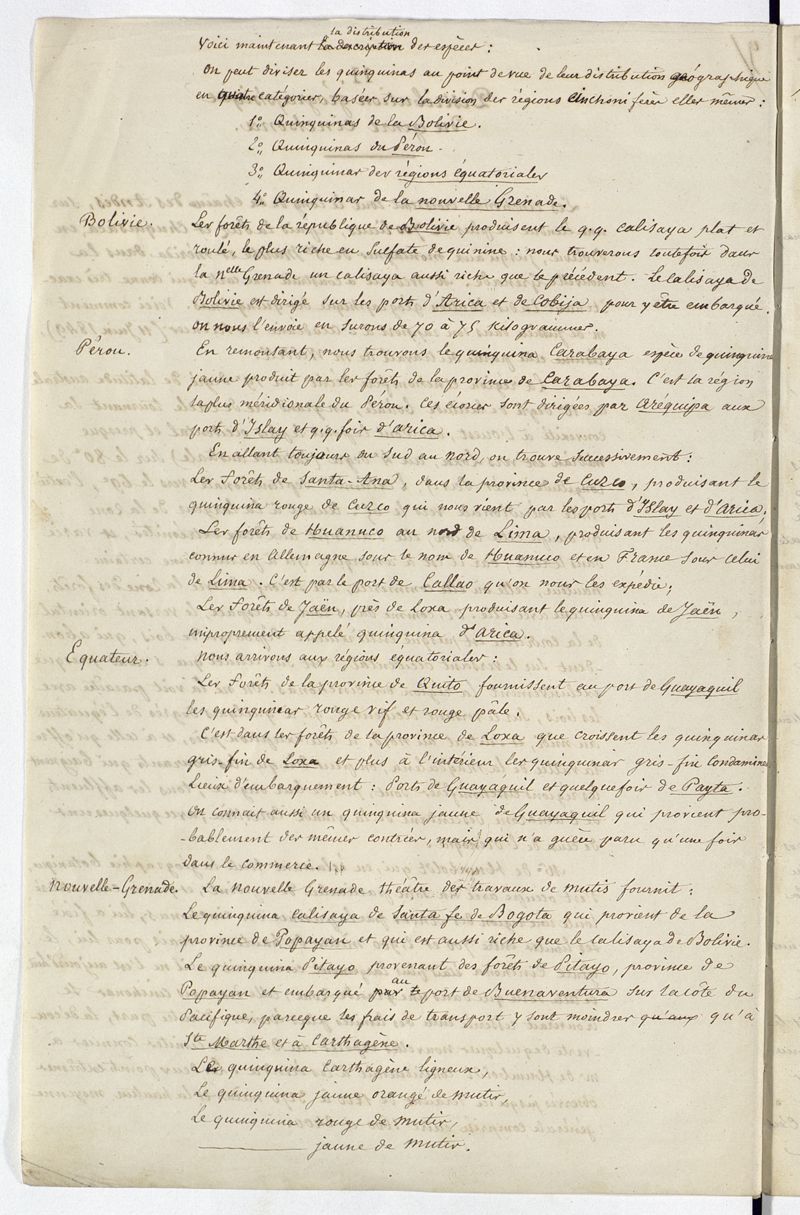 la distribution
Voici maintenant la description des espèces :
On peut diviser les quinquinas au point de vue de leur distribution géographique
en quatre catégories, basées sur la division des régions cinchonifères elles mêmes :
1º Quinquinas de la Bolivie.
2º Quinquinas du Pérou.
3º Quinquinas des régions équatoriales
4º Quinquinas de la nouvelle Grenade.
Bolivie. Les forêts de la république de Bolivie produisent le q.q. calisaya plat et
roulé, le plus riche en sulfate de quinine : nous trouverons toutefois dans
la nelle Grenade un calisaya aussi riche que le précédent. Le calisaya de
Bolivie est dirigé sur les ports d'Arica et de Cobija pour y être embarqué.
On nous l'envoie en surons de 70 à 75 kilogrammes.
Pérou. En remontant, nous trouvons le quinquina Carabaya espèce de quinquina
jaune produit par les forêts de la province de Carabaya. C'est la région
la plus méridionale du Pérou. Ces écorces sont dirigées par Aréquipa aux
ports d'Islay et q.q. fois d'Arica.
En allant toujours du sud au nord, on trouve successivement :
Les forêts de Santa-Ana, dans la province de Cuzco, produisant le
quinquina rouge de Cuzco qui nous vient par les ports d'Islay et d'Arica,
Les forêts de Huanuco au nord de Lima, produisant les quinquinas
connus en Allemagne sous le nom de Huanuco et en France sous celui
de Lima. C'est par le port de Callao qu'on nous les expédie ;
Les forêts de Jaën, près de Loxa produisant le quinquina de Jaën,
improprement appelé quinquina d'Arica.
Equateur. Nous arrivons aux régions équatoriales :
Les forêts de la province de Quito fournissent au port de Guayaquil
les quinquinas rouge vif et rouge pâle.
C'est dans les forêts de la province de Loxa que croissent les quinquinas
gris-fin de Loxa et plus à l'intérieur les quinquinas gris-fin Condaminea
Lieux d'embarquement : Ports de Guayaquil et quelquefois de Payta.
On connait aussi un quinquina jaune de Guayaquil qui provient pro-
-bablement des mêmes contrées, mais qui n'a guère paru qu'une fois
dans le commerce.
Nouvelle-Grenade. La Nouvelle Grenade théâtre des travaux de Mutis fournit :
Le quinquina calisaya de Santa fe de Bogota qui provient de la
province de Popayan et qui est aussi riche que le calisaya de Bolivie.
Le quinquina Pitayo provenant des forêts de Pitayo, province de
au
Popayan et embarqué par le port de Buenaventura sur la côte du
Pacifique, parceque les frais de transport y sont moindres qu'aux qu'à
Ste Marthe et à Carthagène.
Le quinquina Carthagène ligneux,
Le quinquina jaune orangé de Mutis,
Le quinquina rouge de Mutis,
jaune de Mutis.